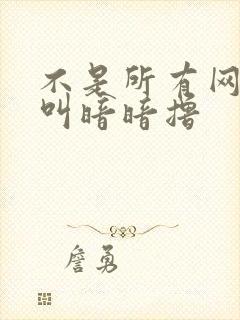 不是所有网
叫暗暗撸
詹勇